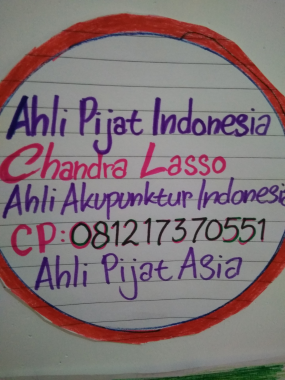 Ahli Pijat Indonesia
Chandra Lasso
Ahli Akupunktur Indonesia
CP: 081217370551
Ahli Pijat Asia